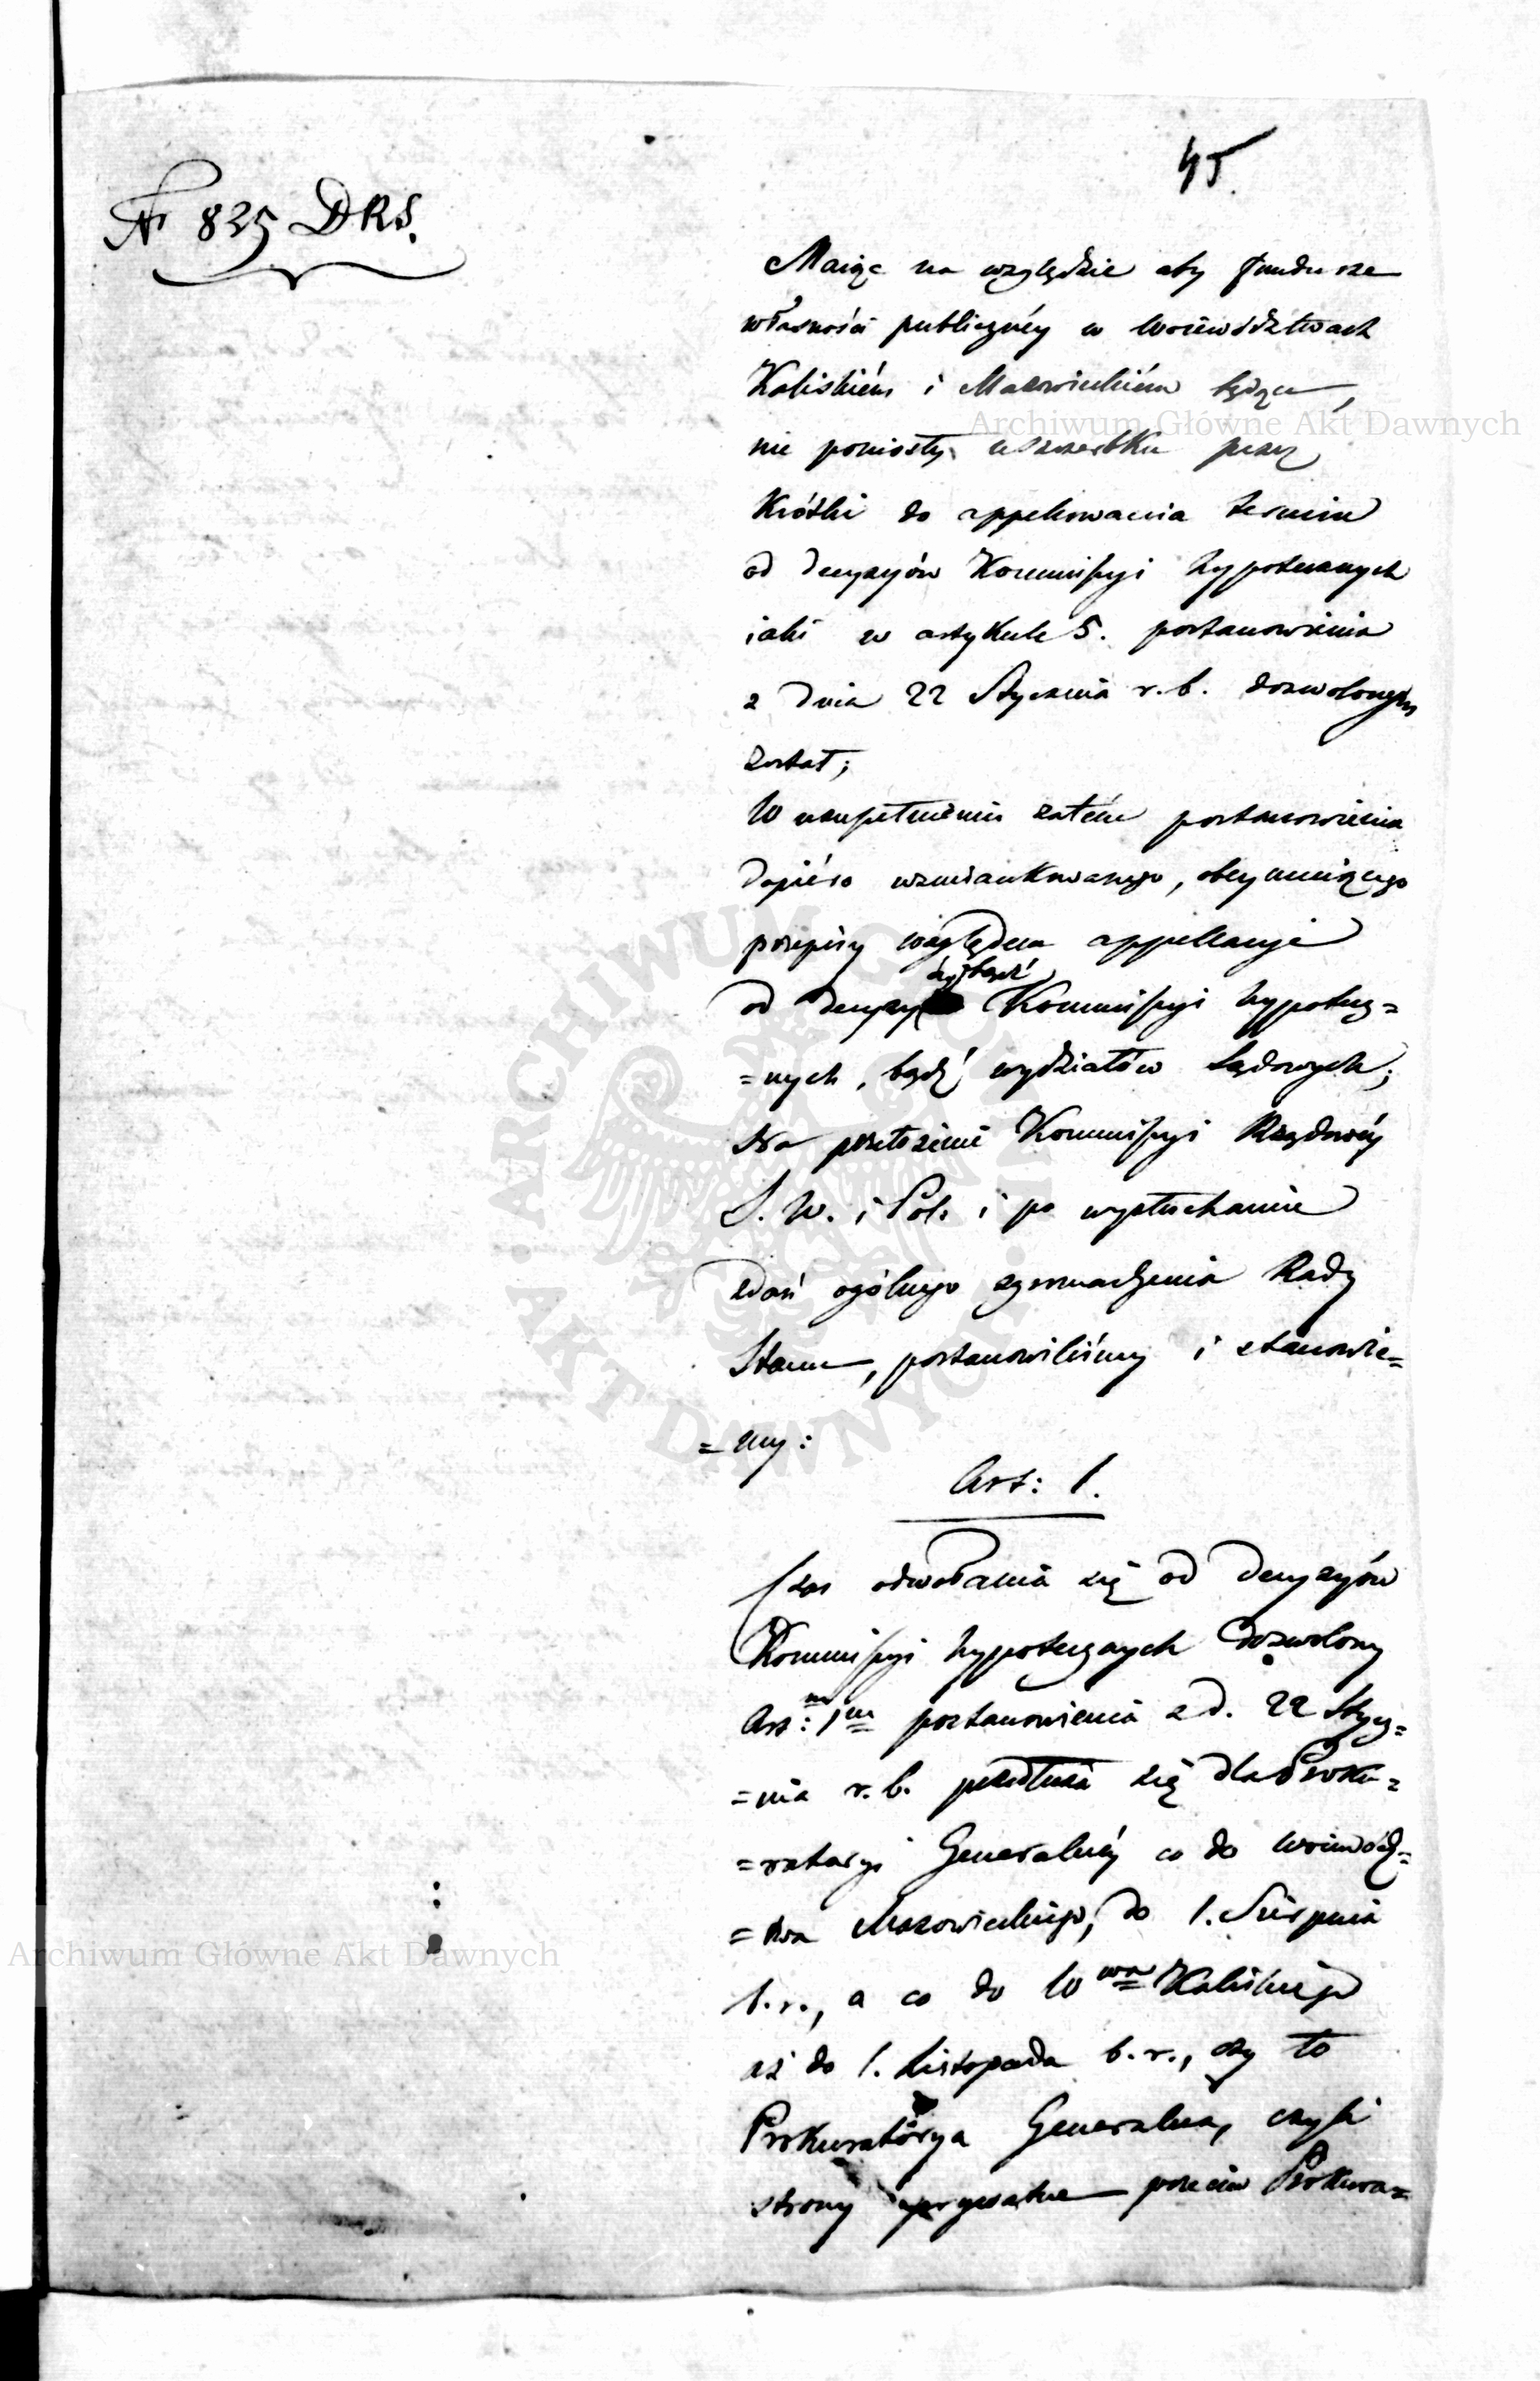 45.
Nr 825 DRS.
Maiąc na względzie aby fundusze
własności publicznéy w Woiewództwach
Kaliskiém i Mazowieckiém będące,
nie poniosły uszczerbku przez
krótki do appellowania termin
od decyzyów Kommissyi hypotecznych
iaki w artykule 5. postanowienia
z dnia 22 Stycznia r. b. dozwolonym
został;
W uzupełnieniu zatém postanowienia
dopiéro wzmiankowanego, obeymuiącego
przepisy względem appellacyi
od decyzyi bądź Kommissyi hypotecz=
=nych, bądź wydziałów Sądowych;
Na przełożenie Kommissyi Rządowéy
S. W. i Pol. i po wysłuchaniu
zdań ogólnego zgromadzenia Rady
Stanu, postanowiliśmy i stanowie=
=my:
Art: 1.
Czas odwołania się od decyzyów
Kommissyi hypotecznych dozwolony
Art: 1m postanowienia z d. 22 Stycz=
=nia r. b. przedłuża się dla Proku=
=ratoryi Generalnéy co do Woiewódz=
=twa Mazowieckiego, do 1. Sierpnia
b. r., a co do Wwa Kaliskiego
aż do 1. Listopada b. r., czy to
Prokuratorya Generalna, czyli
strony prywatne przeciw Prokura=
Archiwum Główne Akt Dawnych
Archiwum Główne Akt Dawnych
ARCHIWUM GŁÓWNE · AKT DAWNYCH ·